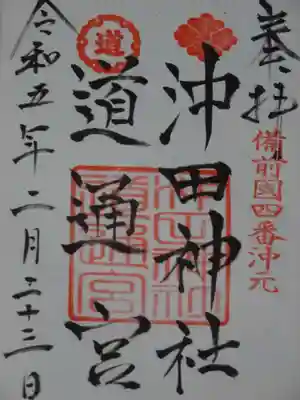 奉拝
備前國四番沖元
沖田神社
道
道通宮
令和五年二月二十三日